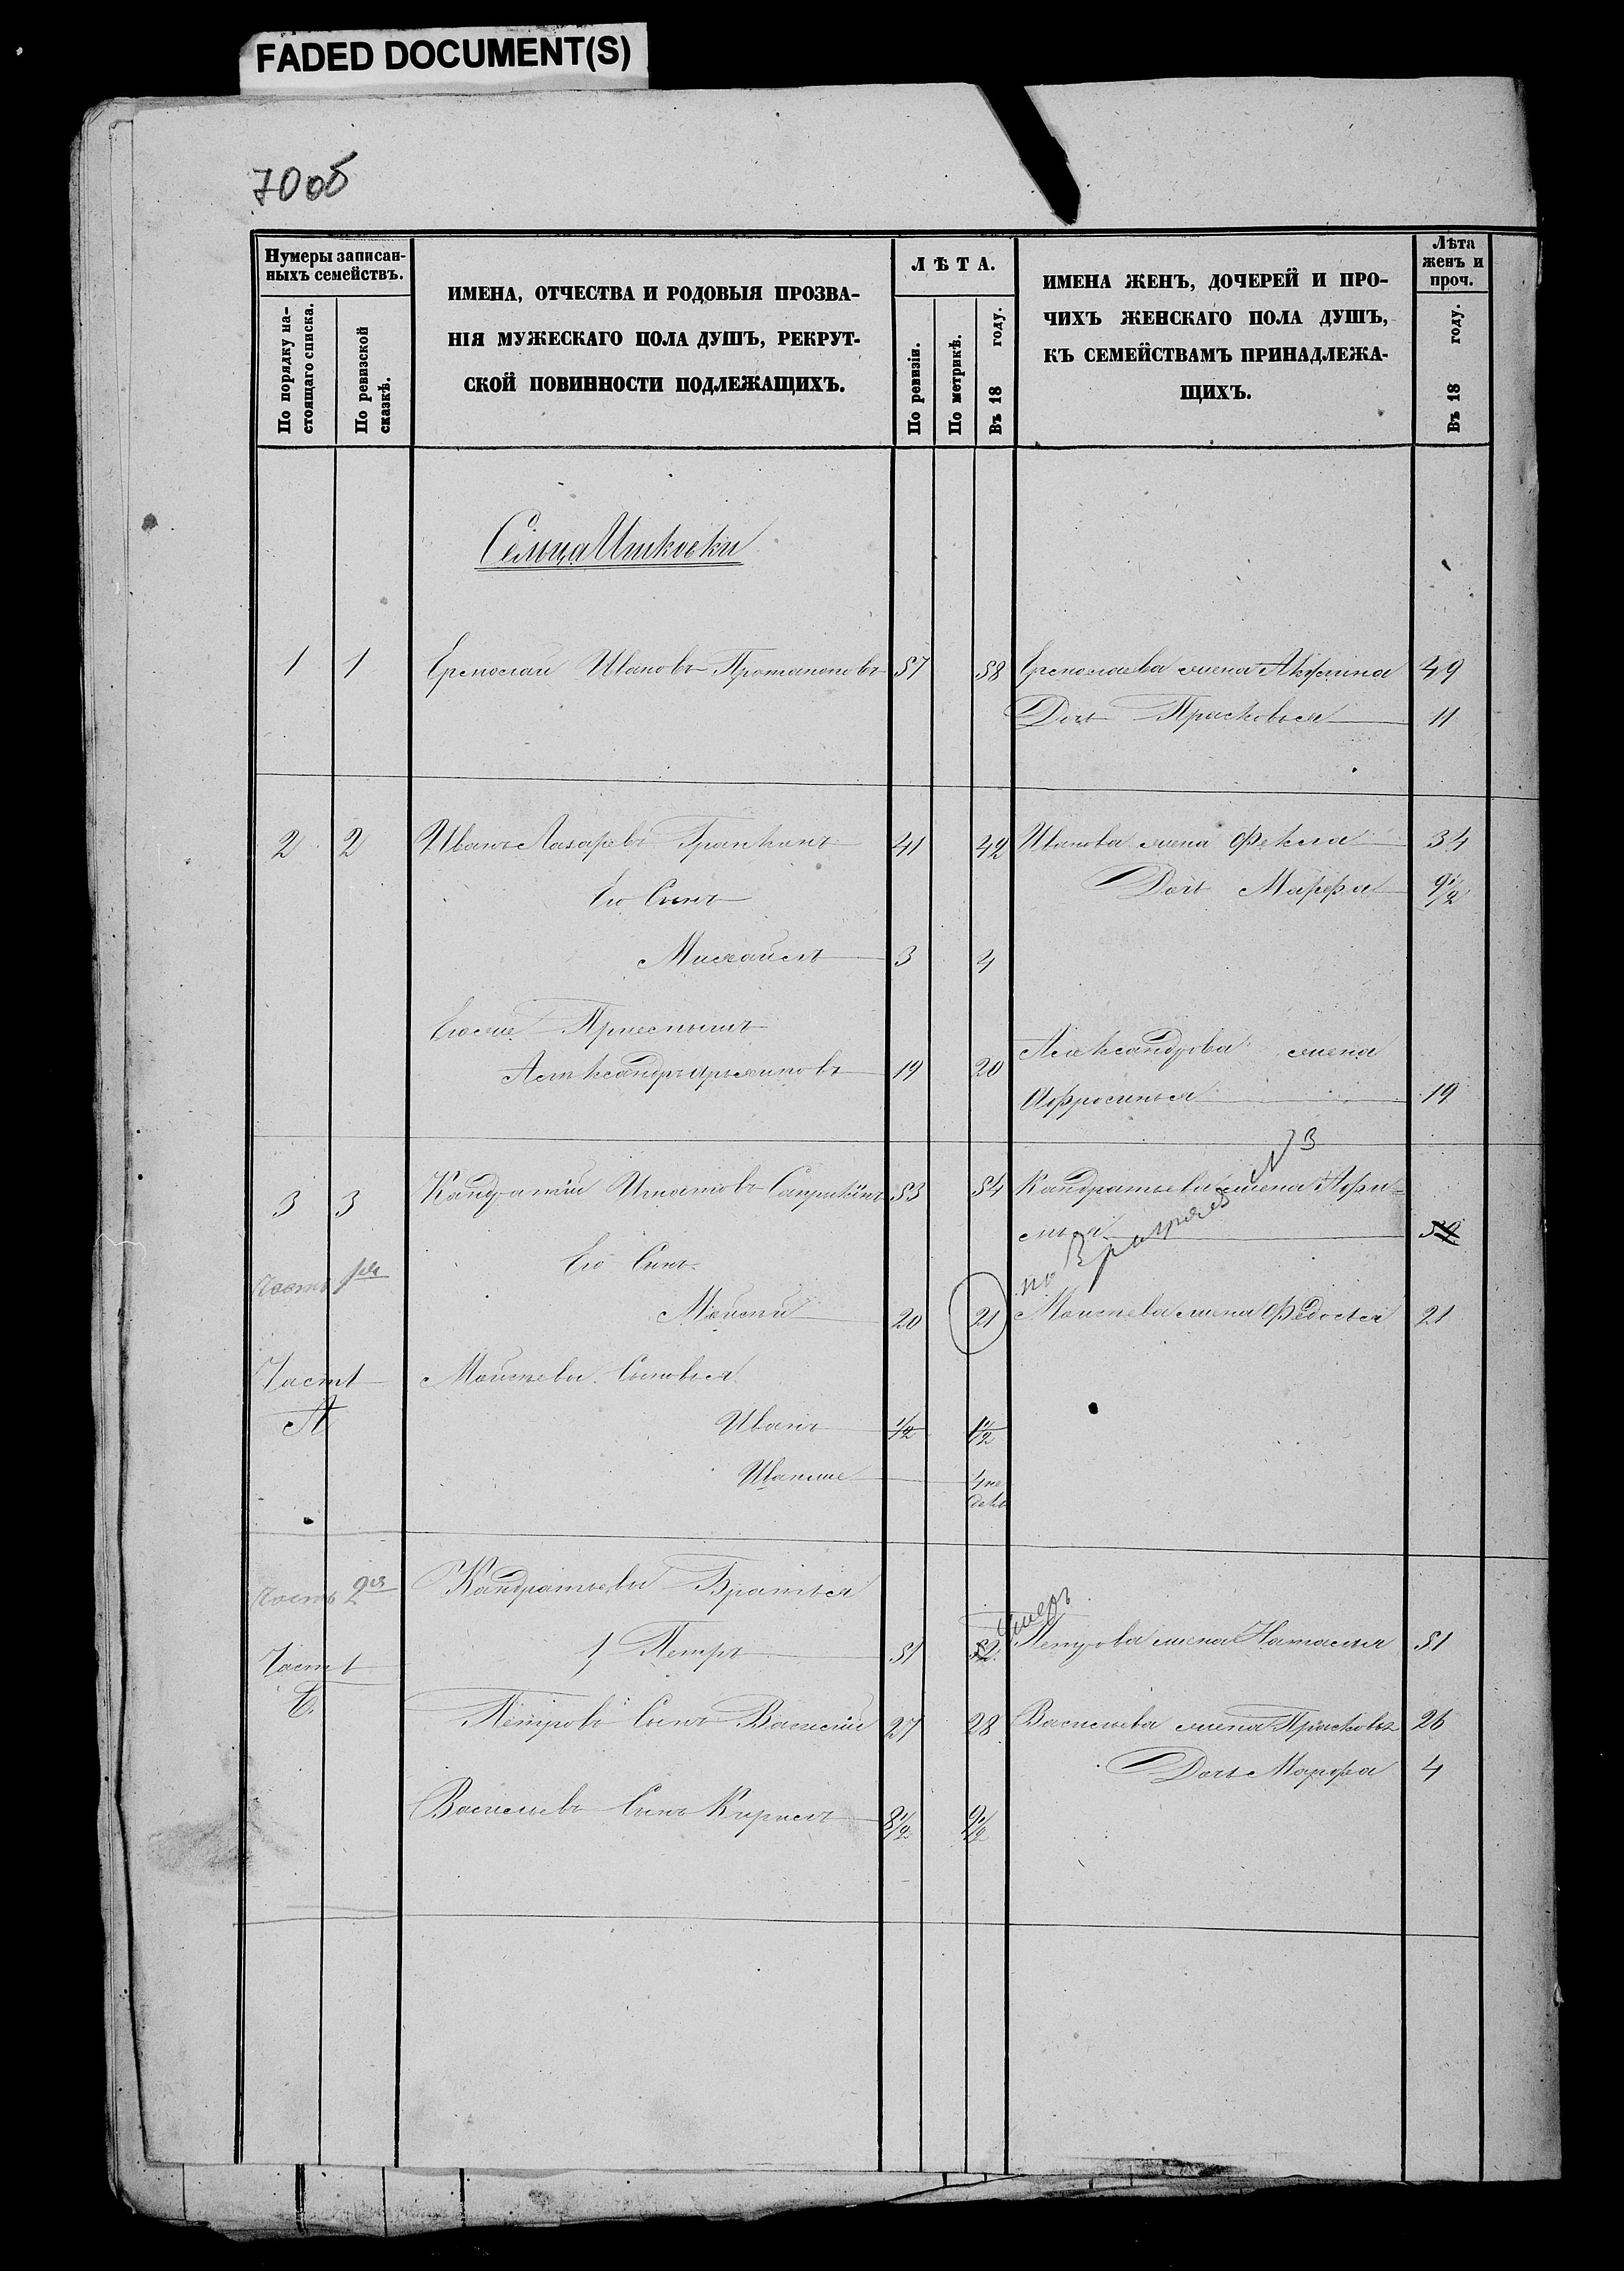 FADED DOCUMENT(S)
70об
Нумеры записан-
ныхъ семействъ.
По порядку на-
стоящаго списка.
По ревизской
сказкѣ.
ИМЕНА, ОТЧЕСТВА И РОДОВЫЯ ПРОЗВА-
НІЯ МУЖЕСКАГО ПОЛА ДУШЪ, РЕКРУТ-
СКОЙ ПОВИННОСТИ ПОДЛЕЖАЩИХЪ.
ЛѢТА.
По ревизіи.
По метрикѣ.
Въ 18 году.
ИМЕНА ЖЕНЪ, ДОЧЕРЕЙ И ПРО-
ЧИХЪ ЖЕНСКАГО ПОЛА ДУШЪ,
КЪ СЕМЕЙСТВАМЪ ПРИНАДЛЕЖА-
ЩИХЪ.
Лѣта
женъ и
проч.
Въ 18 году.
Сельца
1 1 Ермолай Ивановъ Протопоповъ 57 58 Ермолаева жена Акулина 49
Дочь Прасковья 11
2 2 Иванъ Лазаревъ 41 42 Иванова жена Фекла 34
Дочь Марфа 9 1/2
Его Сынъ
Михайлъ 3 4
Его же Пріемышъ
Александръ Архиповъ 19 20 Александрова жена
Афросинья 19
3 3 Кандратій Игнатовъ Сапрыкинъ 53 54 Кандратьева жена Афи-
мья
Его Сынъ
часть 1я
Мойсей 20 21 Моисеева жена Федосья 21
Часть
А
Мойсеевы Сыновья
Иванъ 1/2 1 1/2
Иванъ же 4 не
дель
часть 2я
Кандратьевы Братья
умеръ
1, Петръ 51 52 Петрова жена Наталья 51
Часть
Б.
Петровъ Сынъ Василій 27 28 Васильева жена Прасковья 26
Дочь Марфа 4
Васильевъ Сынъ Кирилъ 8 1/2 9 1/2